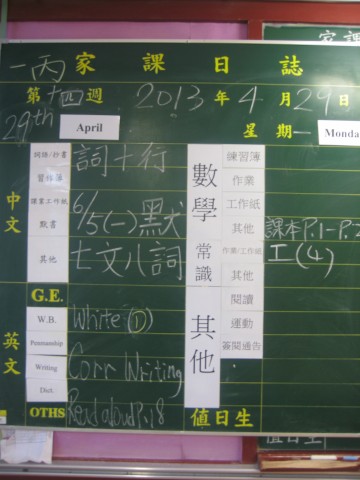 一丙 家課日誌
第十四週 2013年4月29日
29th April 星期一 Monda
中文
詞語/抄書 詞十行
習作簿
課業工作紙
默書 6/5(一)默
其他 七文八詞
數學
練習簿
作業
工作紙
其他 課本P.1-P.2
常識
作業/工作紙 I(4)
其他
G.E.
英文
W.B. White ①
Penmanship
Writing Corr Writing
Dict.
OTHS Read aloud P.18
其他
閱讀
運動
簽閱通告
值日生
家課
值日生